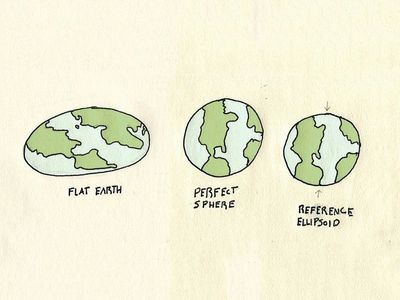 FLAT EARTH
PERFECT
SPHERE
REFERENCE
ELLIPSOID